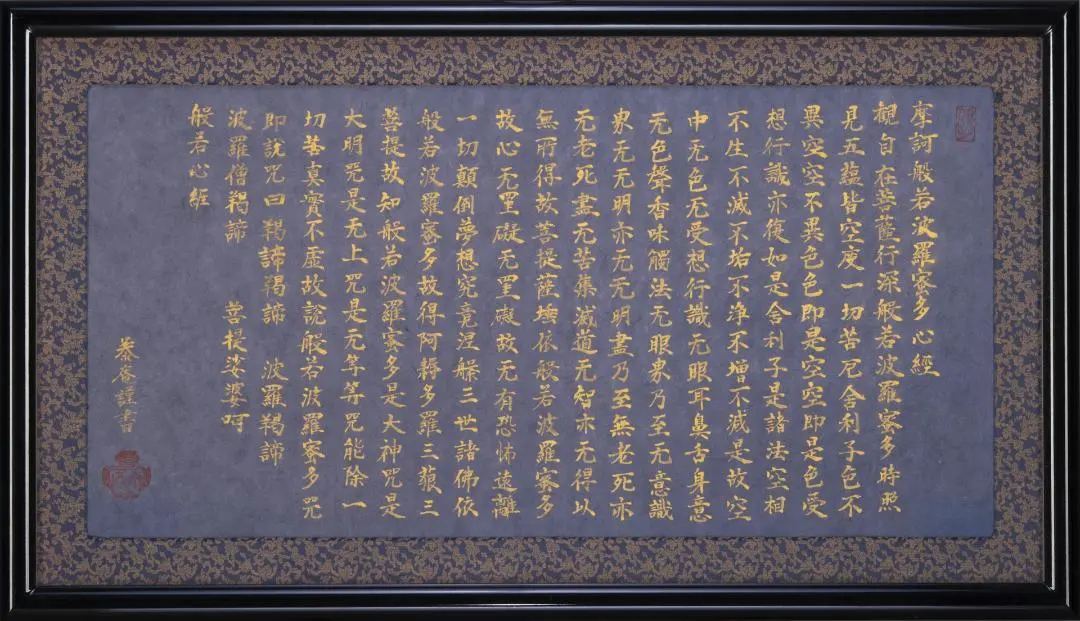 摩訶般若波羅蜜多心經
觀自在菩薩行深般若波羅蜜多時照
見五蘊皆空度一切苦厄舍利子色不
異空空不異色色即是空空即是色受
想行識亦復如是舍利子是諸法空相
不生不滅不垢不淨不增不減是故空
中无色无受想行識无眼耳鼻舌身意
无色聲香味觸法无眼界乃至无意識
界无无明亦无无明盡乃至無老死亦
无老死盡无苦集滅道无智亦无得以
無所得故菩提薩埵依般若波羅蜜多
故心无罣礙无罣礙故无有恐怖遠離
一切顛倒夢想究竟涅槃三世諸佛依
般若波羅蜜多故得阿耨多羅三藐三
菩提故知般若波羅蜜多是大神咒是
大明咒是无上咒是无等等咒能除一
切苦真實不虛故說般若波羅蜜多咒
即說咒曰羯諦羯諦 波羅羯諦
波羅僧羯諦 菩提娑婆呵
般若心經
謹書